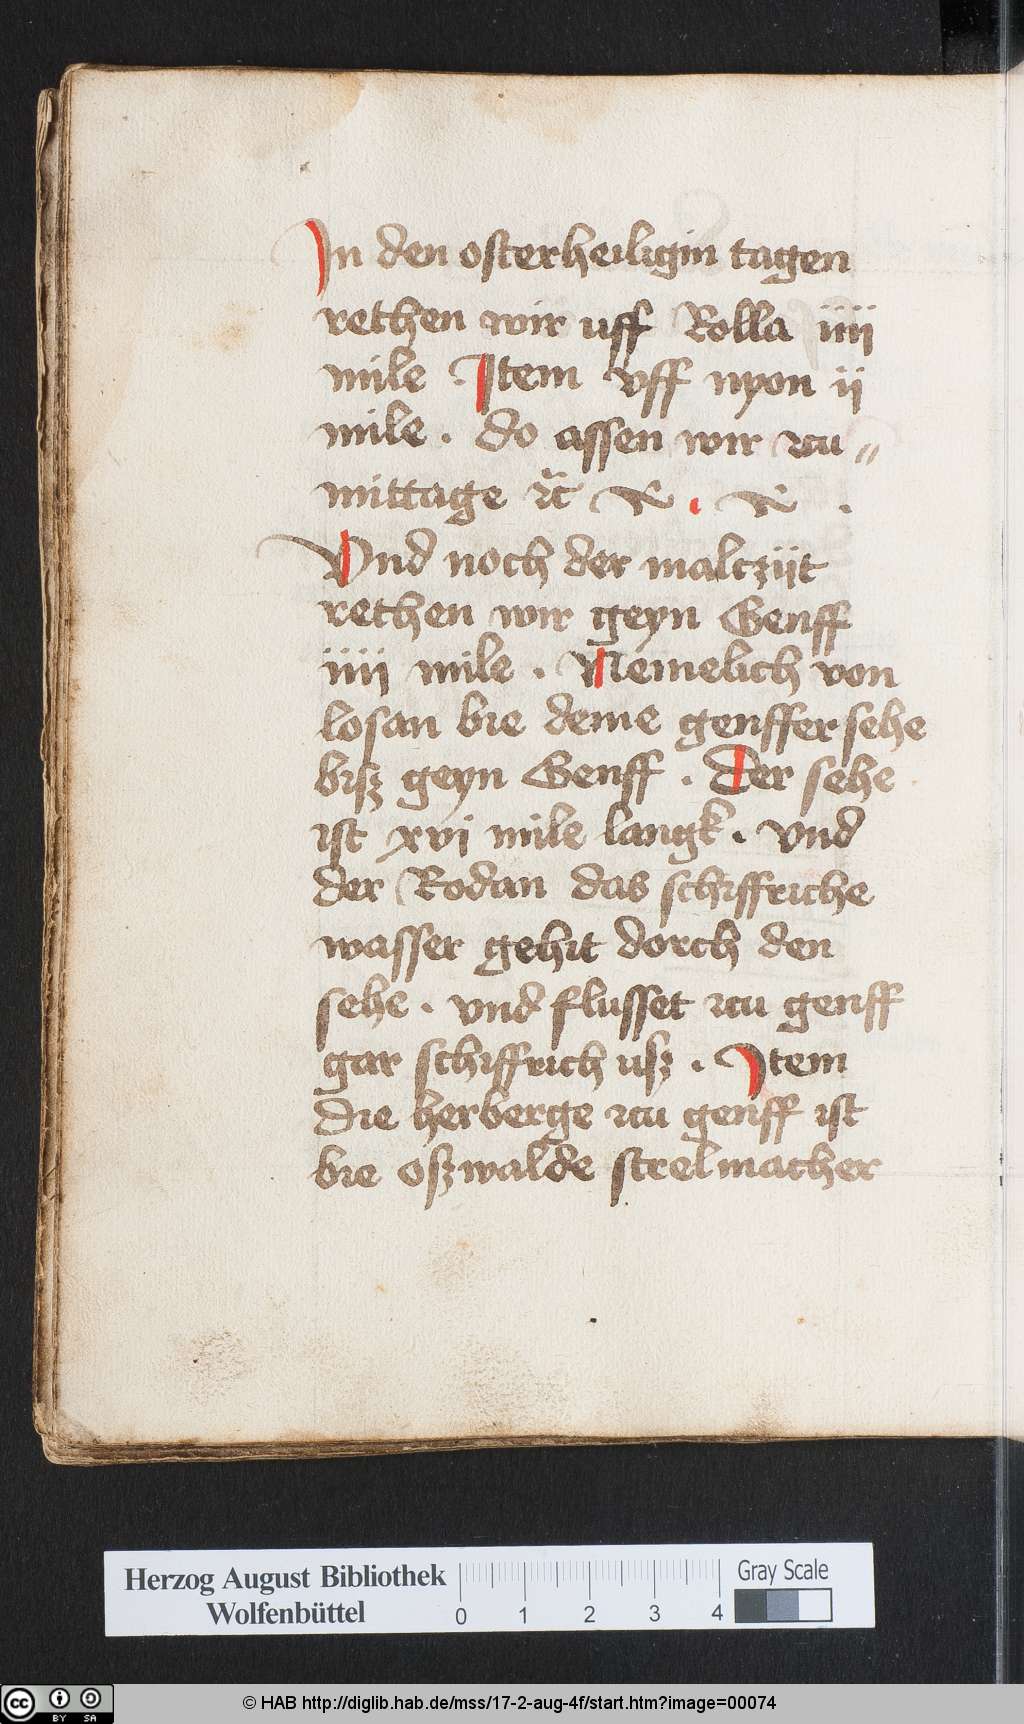 In den osterheiligin tagen
rethen wir uff Rolla iiii
mile . Item vff nyon ii
mile . do assen wir zcu〃
mittage ꝛc̃
Vnd noch der malczijt
rethen wir geyn Genff
iiii mile . Nemelich von
losan bie deme genffer sehe
bisz geyn Genff . Der sehe
ist xvi mile langk . vnd
der Rodan das schiffriche
wasser gehit dorch den
sehe . vnd flusset zcu genff
gar schiffrich usz . Item
die herberge zcu genff ist
bie oszwalde strelmacher
Herzog August Bibliothek
Wolfenbüttel
0 1 2 3 4
Gray Scale
cc BY SA
© HAB http://diglib.hab.de/mss/17-2-aug-4f/start.htm?image=00074